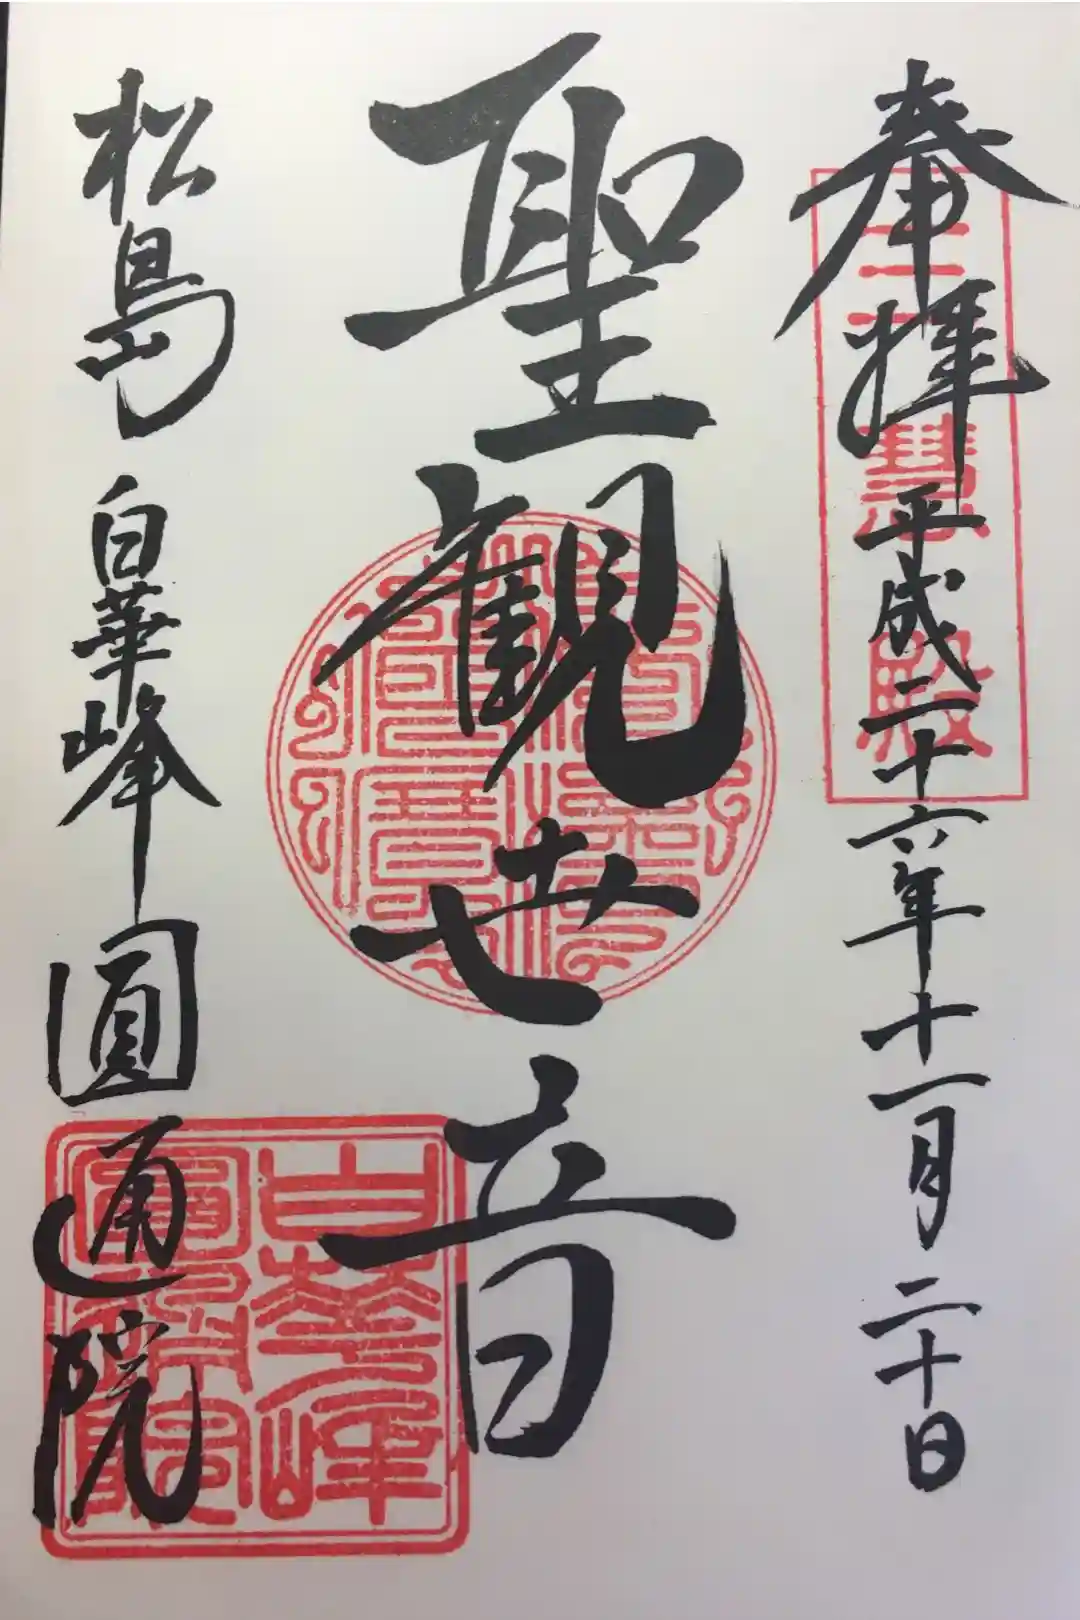 奉拝 平成二十六年十一月二十日
三慧殿
聖観世音
松島 白華峰 圓通院
白華峰
圓通院